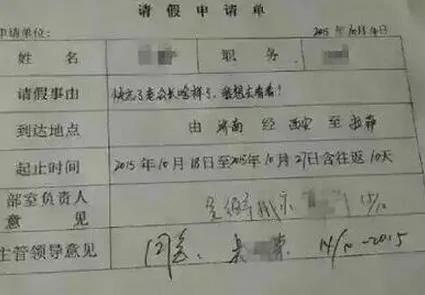 请假申请单
申请单位: 2015年10月14日
姓名 职务
请假事由 快忘了老公长啥样了,我想去看看!
到达地点 由 济南 经 西安 至 拉萨
起止时间 2015年10月18日至2015年10月27日含往返10天
部室负责人
意见
主管领导意见 同意 14/10-2015